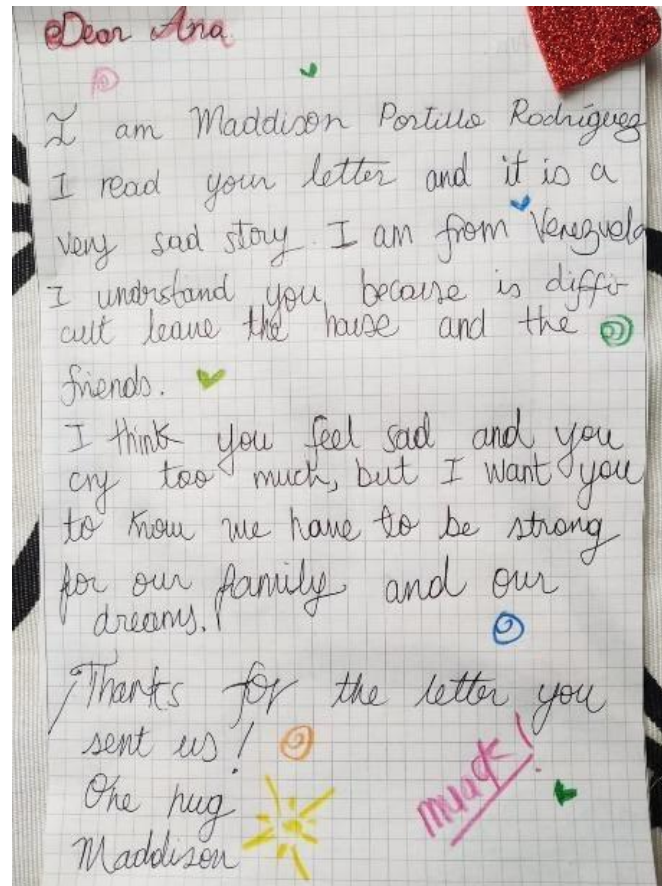 Dear Ana
I am Maddison Portillo Rodríguez
I read your letter and it is a
very sad story. I am from Venezuela
I understand you because is diffi-
cult leave the house and the
friends.
I think you feel sad and you
cry too much, but I want you
to know we have to be strong
for our family and our
dreams.
Thanks for the letter you
sent us!
One hug
muack!
Maddison